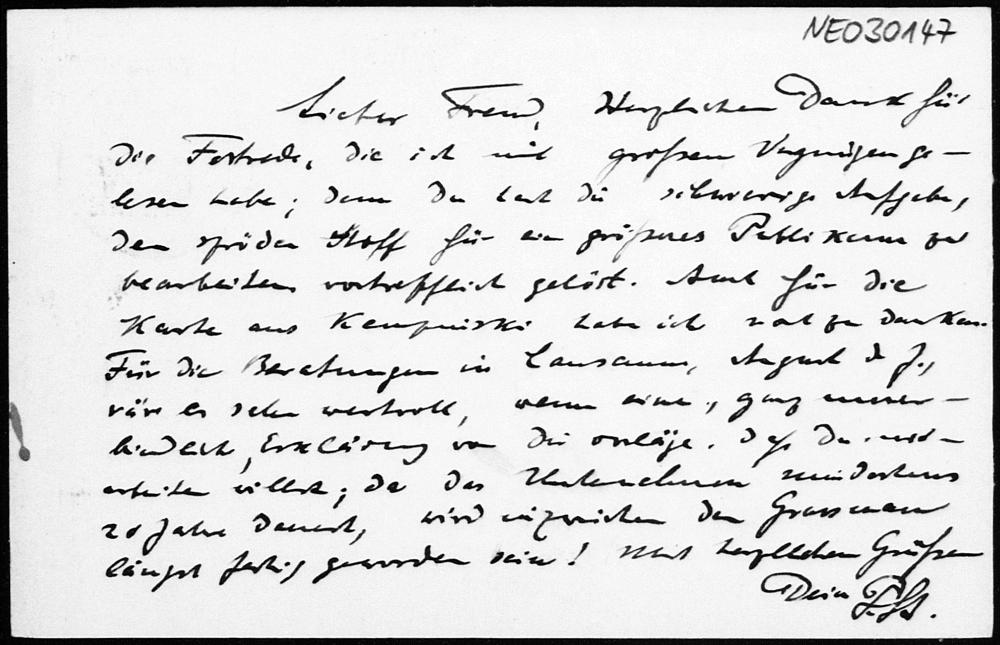 NEO30147
Lieber Freund, Herzlichen Dank für
die Festrede, die ich mit großem Vergnügen ge-
lesen habe; denn Du hast die schwierige Aufgabe,
den spröden Stoff für ein größeres Publikum zu
bearbeiten vortrefflich gelöst. Auch für die
Karte aus habe ich noch zu danken.
Für die Beratungen in Lausanne, August d. J.,
wäre es sehr wertvoll, wenn eine, ganz unver-
bindlich, Erklärung von Dir vorläge, daß Du mit-
arbeiten willst; da das Unternehmen mindestens
20 Jahre dauert, wird inzwischen der Grassmann
längst fertig geworden sein! Mit herzlichen Grüßen
Dein P. St.